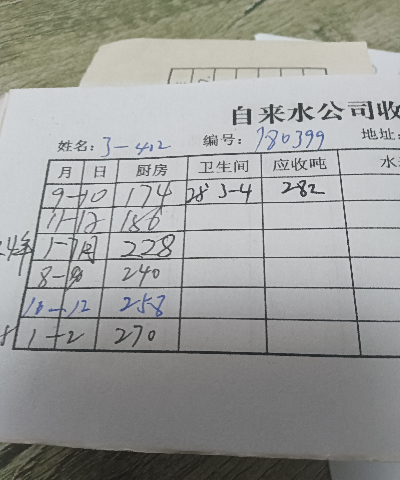 自来水公司收
姓名: 3-412 编号: 780399 地址:
月 日 厨房 卫生间 应收吨 水
9-10 174 28 3-4 282
11-12 186
24年 1-7月 228
8-90 240
10-12 258
1-2 270